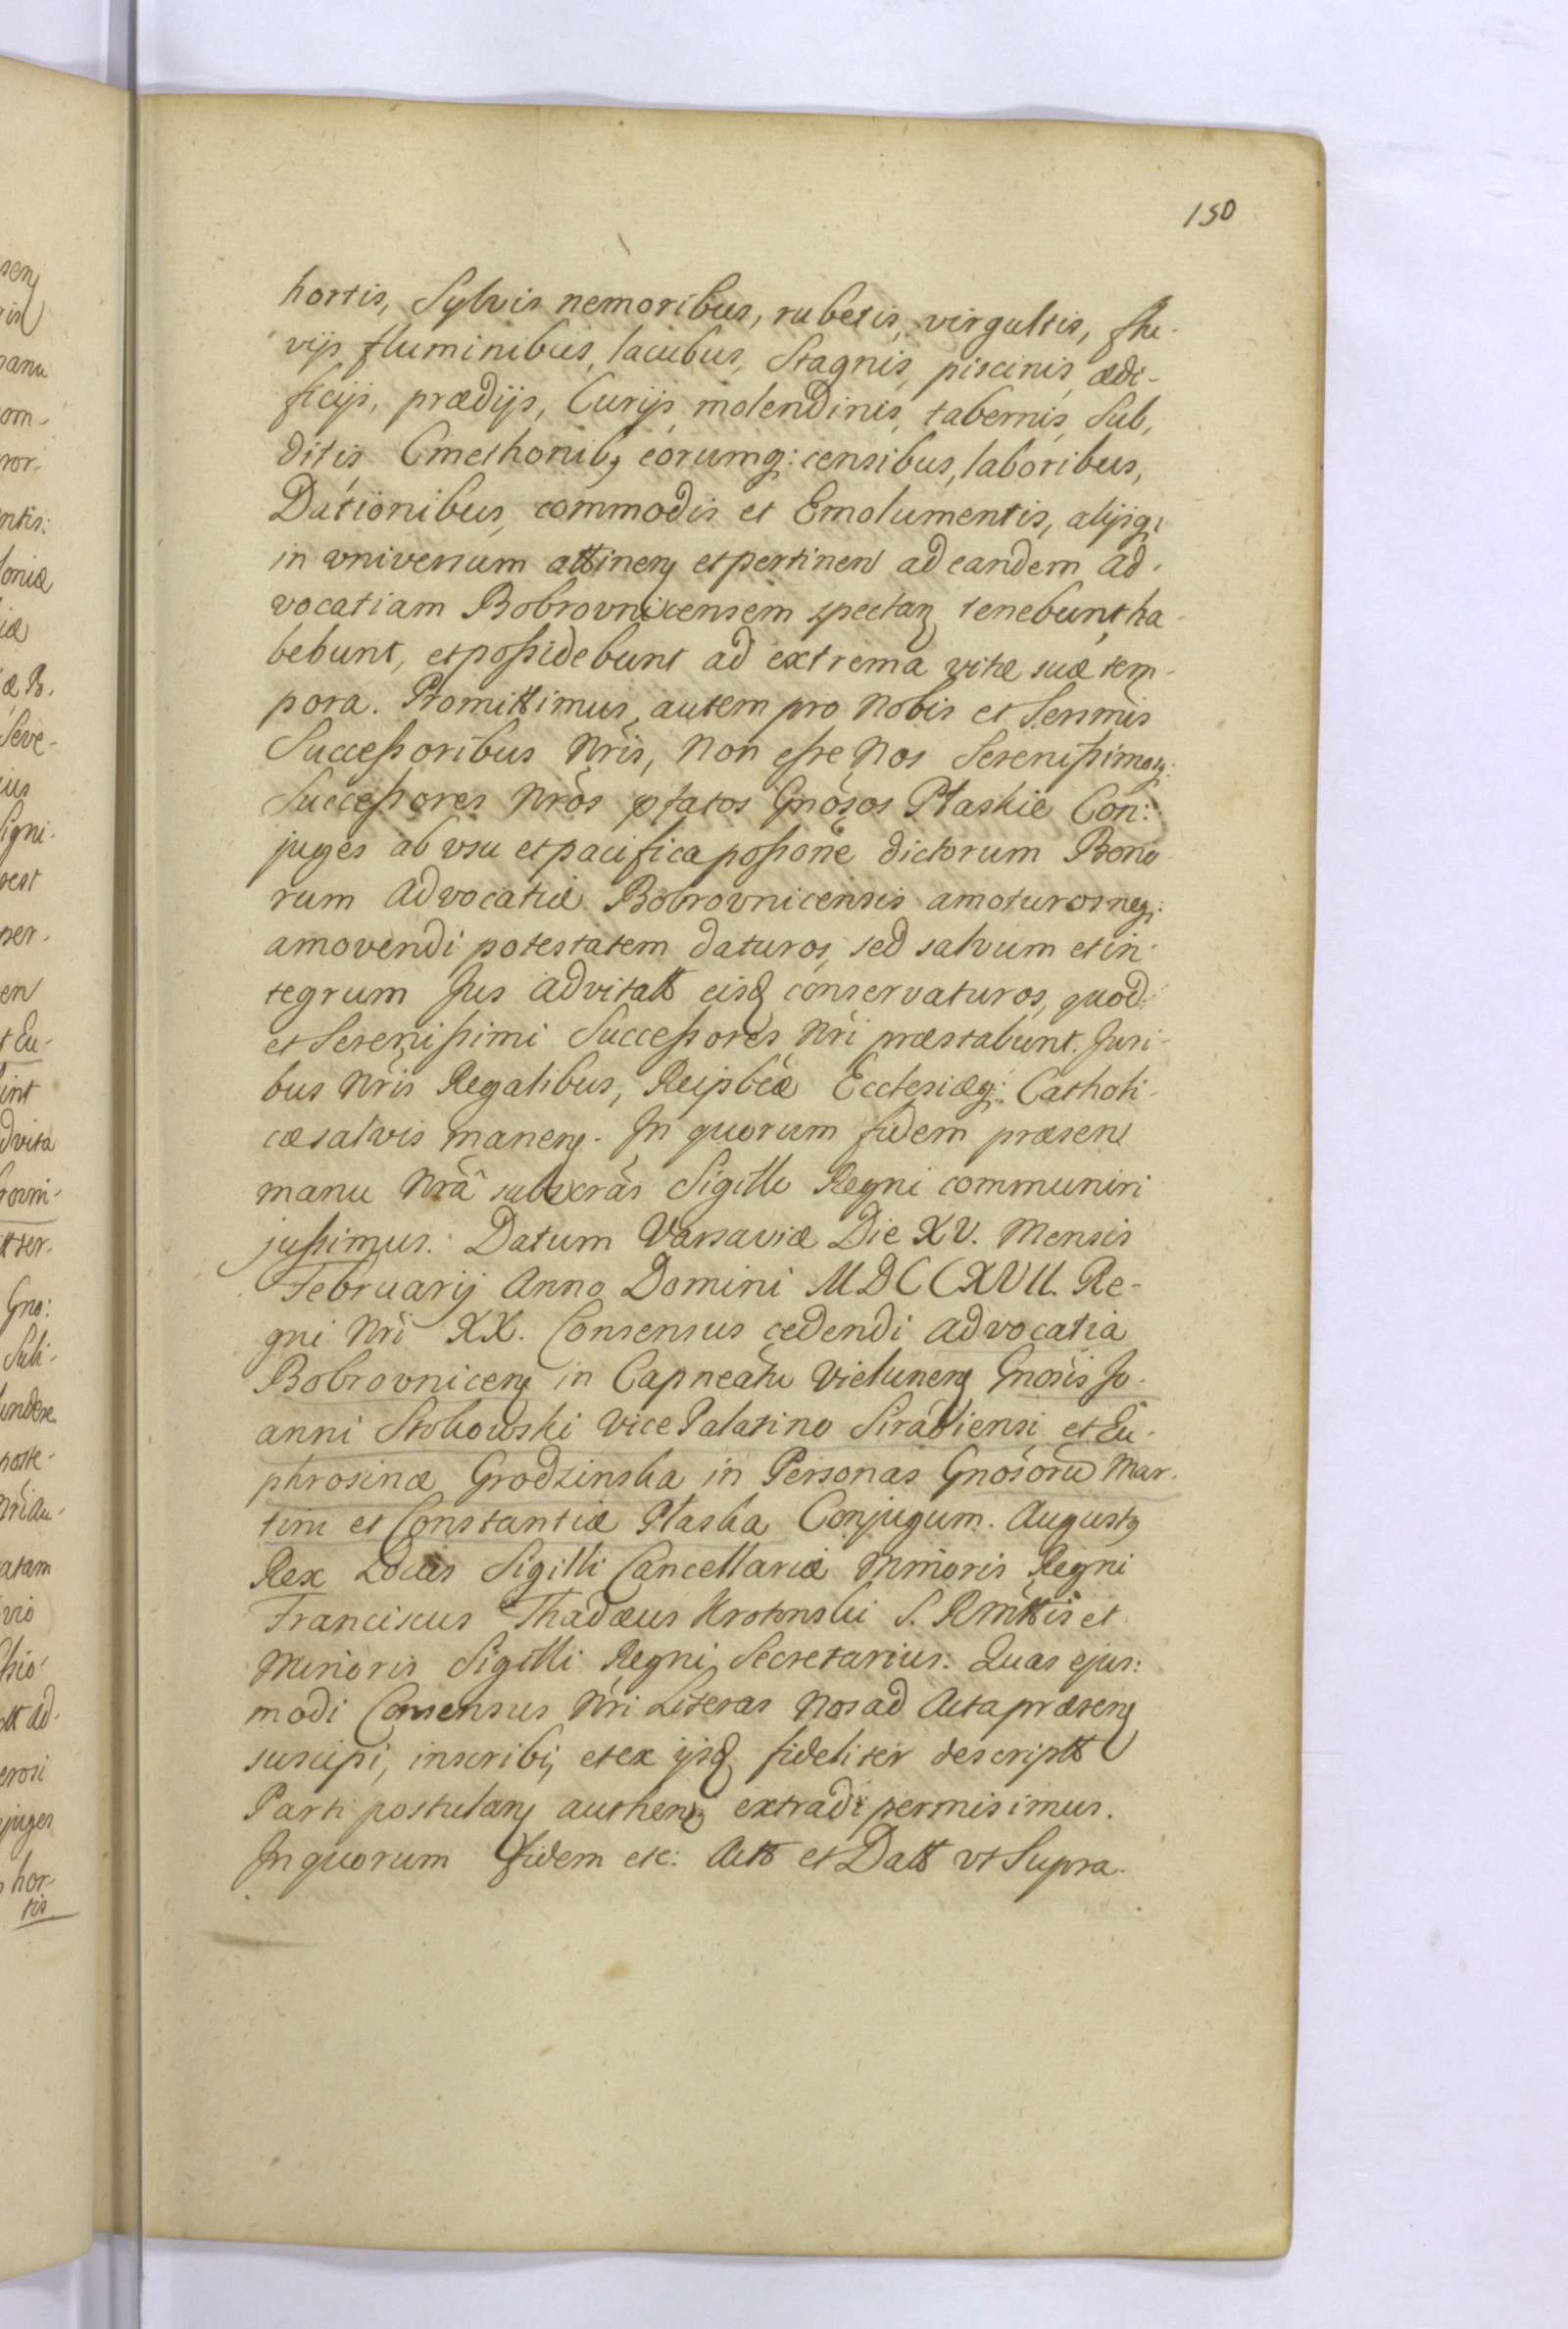 150
hortis, Sylvis nemoribus, rubetis, virgultis, flu-
vijs fluminibus, lacubus, Stagnis, piscinis, ædi-
ficijs, prædijs, Curijs, molendinis, tabernis, Sub,
ditis Cmethonibꝫ eorumq: censibus, laboribus,
Dationibus, commodis et Emolumentis, alijsq:
in vniversum attinen et pertinen ad eandem ad-
vocatiam Bobrovnicensem spectan tenebunt, ha-
bebunt, et possidebunt ad extrema vitæ suæ tem-
pora. Promittimus autem pro Nobis et Sermis
Successoribus Nris, Non esse Nos Serenissimosq:
Successores Nros pfatos Gnosos Płaskie Con:
juges ab vsu et pacifica possone dictorum Bono
rum advocatiæ Bobrovnicensis amoturos neq:
amovendi potestatem daturos, sed salvum et in-
tegrum Jus advitall eisd conservaturos, quod
et Serenissimi Successores Nri præstabunt. Juri-
bus Nris Regalibus, Reipbcæ Ecclesiæq: Catholi-
cæ salvis manen. In quorum fidem præsen
manu Nra subscras Sigillo Regni communiri
jussimus. Datum Varsaviæ Die XV. Mensis
Februarij Anno Domini MDCCXVII. Re-
gni Nri XX. Consensus cedendi advocatia
Bobrovnicen in Capneatu Vielunen Gnosis Jo-
anni Stokowski Vice Palatino Siradiensi et Eu-
phrosinæ Grodzinska in Personas Gnosoru Mar-
tini et Constantiæ Płaska Conjugum. Augusty
Rex Locus Sigilli Cancellariæ Minoris Regni
Franciscus Thadæus S. RMttis et
Minoris Sigilli Regni Secretarius: Quas ejus:
modi Consensus Nri Literas Nos ad Acta præsen
suscipi, inscribi, et ex ijsd fideliter descriptt
Parti postulan authen extradi permisimus.
In quorum fidem etc: Actt et Datt vt Supra.